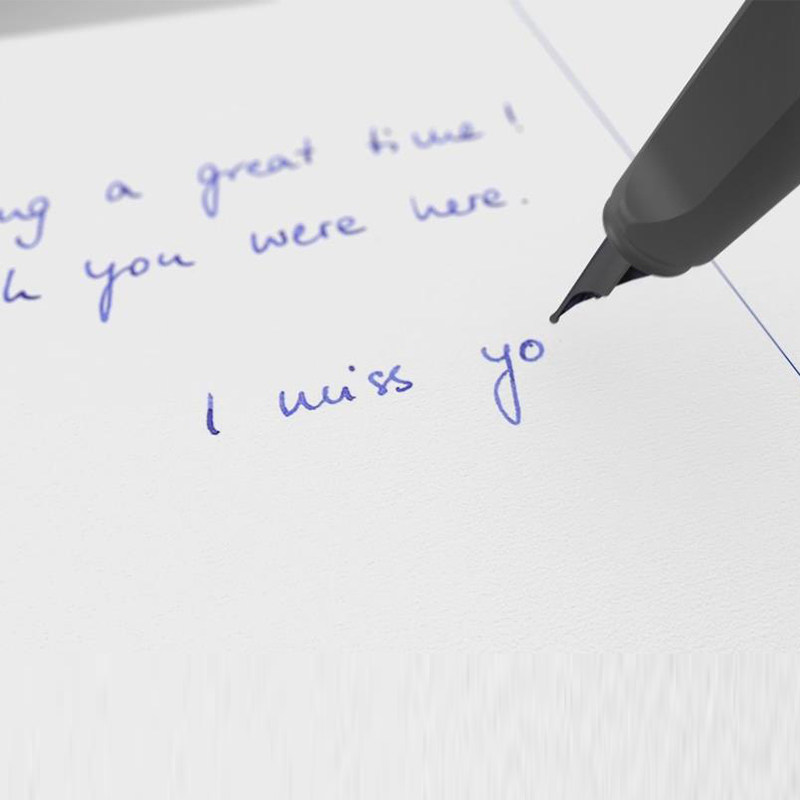 ng a great time!
h you were here.
I miss yo